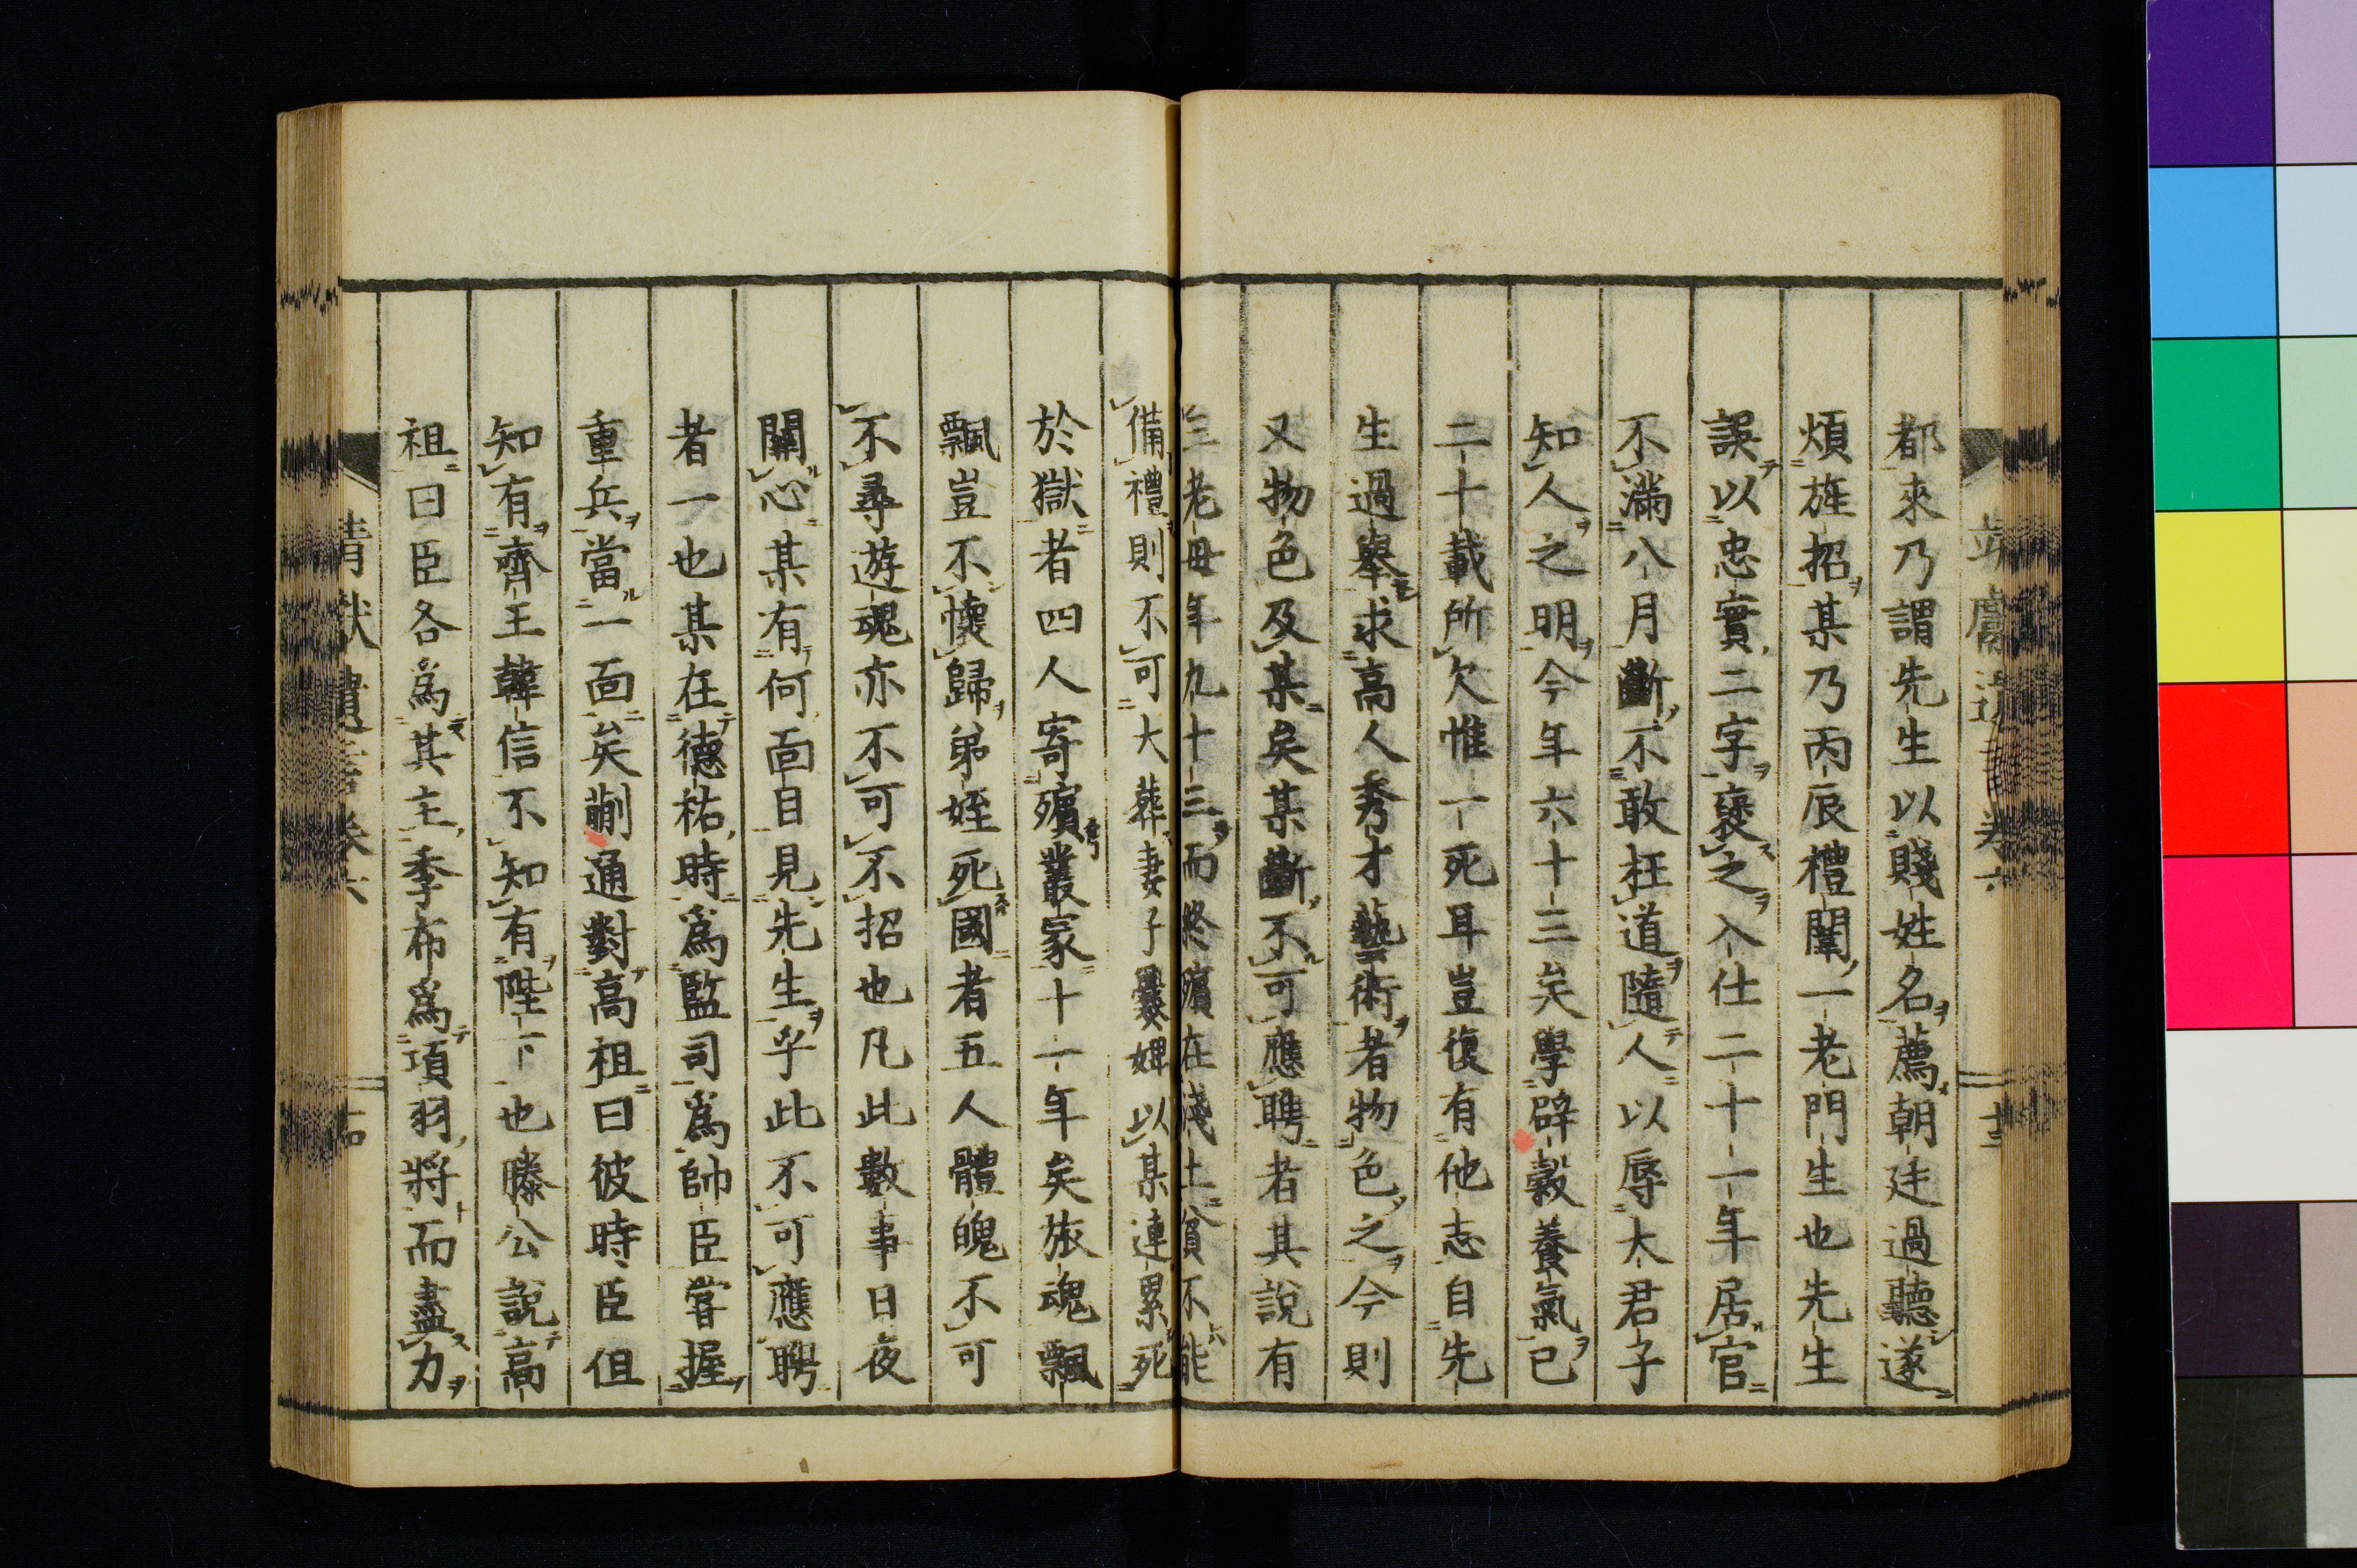 都來乃謂先生以賤姓名薦朝廷過聽遂
煩旌招某乃丙辰禮闈一老門生也先生
誤以忠實二字褒之入仕二十一年居官
不滿八月斷不敢枉道隨人以辱大君子
知人之明今年六十三矣學辟穀養氣已
二十載所欠惟一死耳豈復有他志自先
生過舉求高人秀才藝術者物色之今則
又物色及某矣某斷不可應聘者其說有
三老母年九十三而終殯在淺土貧不能
備禮則不可大葬妻子爨婢以某連累死
於獄者四人寄殯叢冢十一年矣旅魂飄
飄豈不懷歸弟姪死國者五人體魄不可
不尋遊魂亦不可不招也凡此數事日夜
關心某有何面目見先生乎此不可應聘
者一也某在德祐時為監司為帥臣嘗握
重兵當一面矣蒯通對高祖曰彼時臣但
知有齊王韓信不知有陛下也滕公說高
祖曰臣各為其主季布為項羽將而盡力